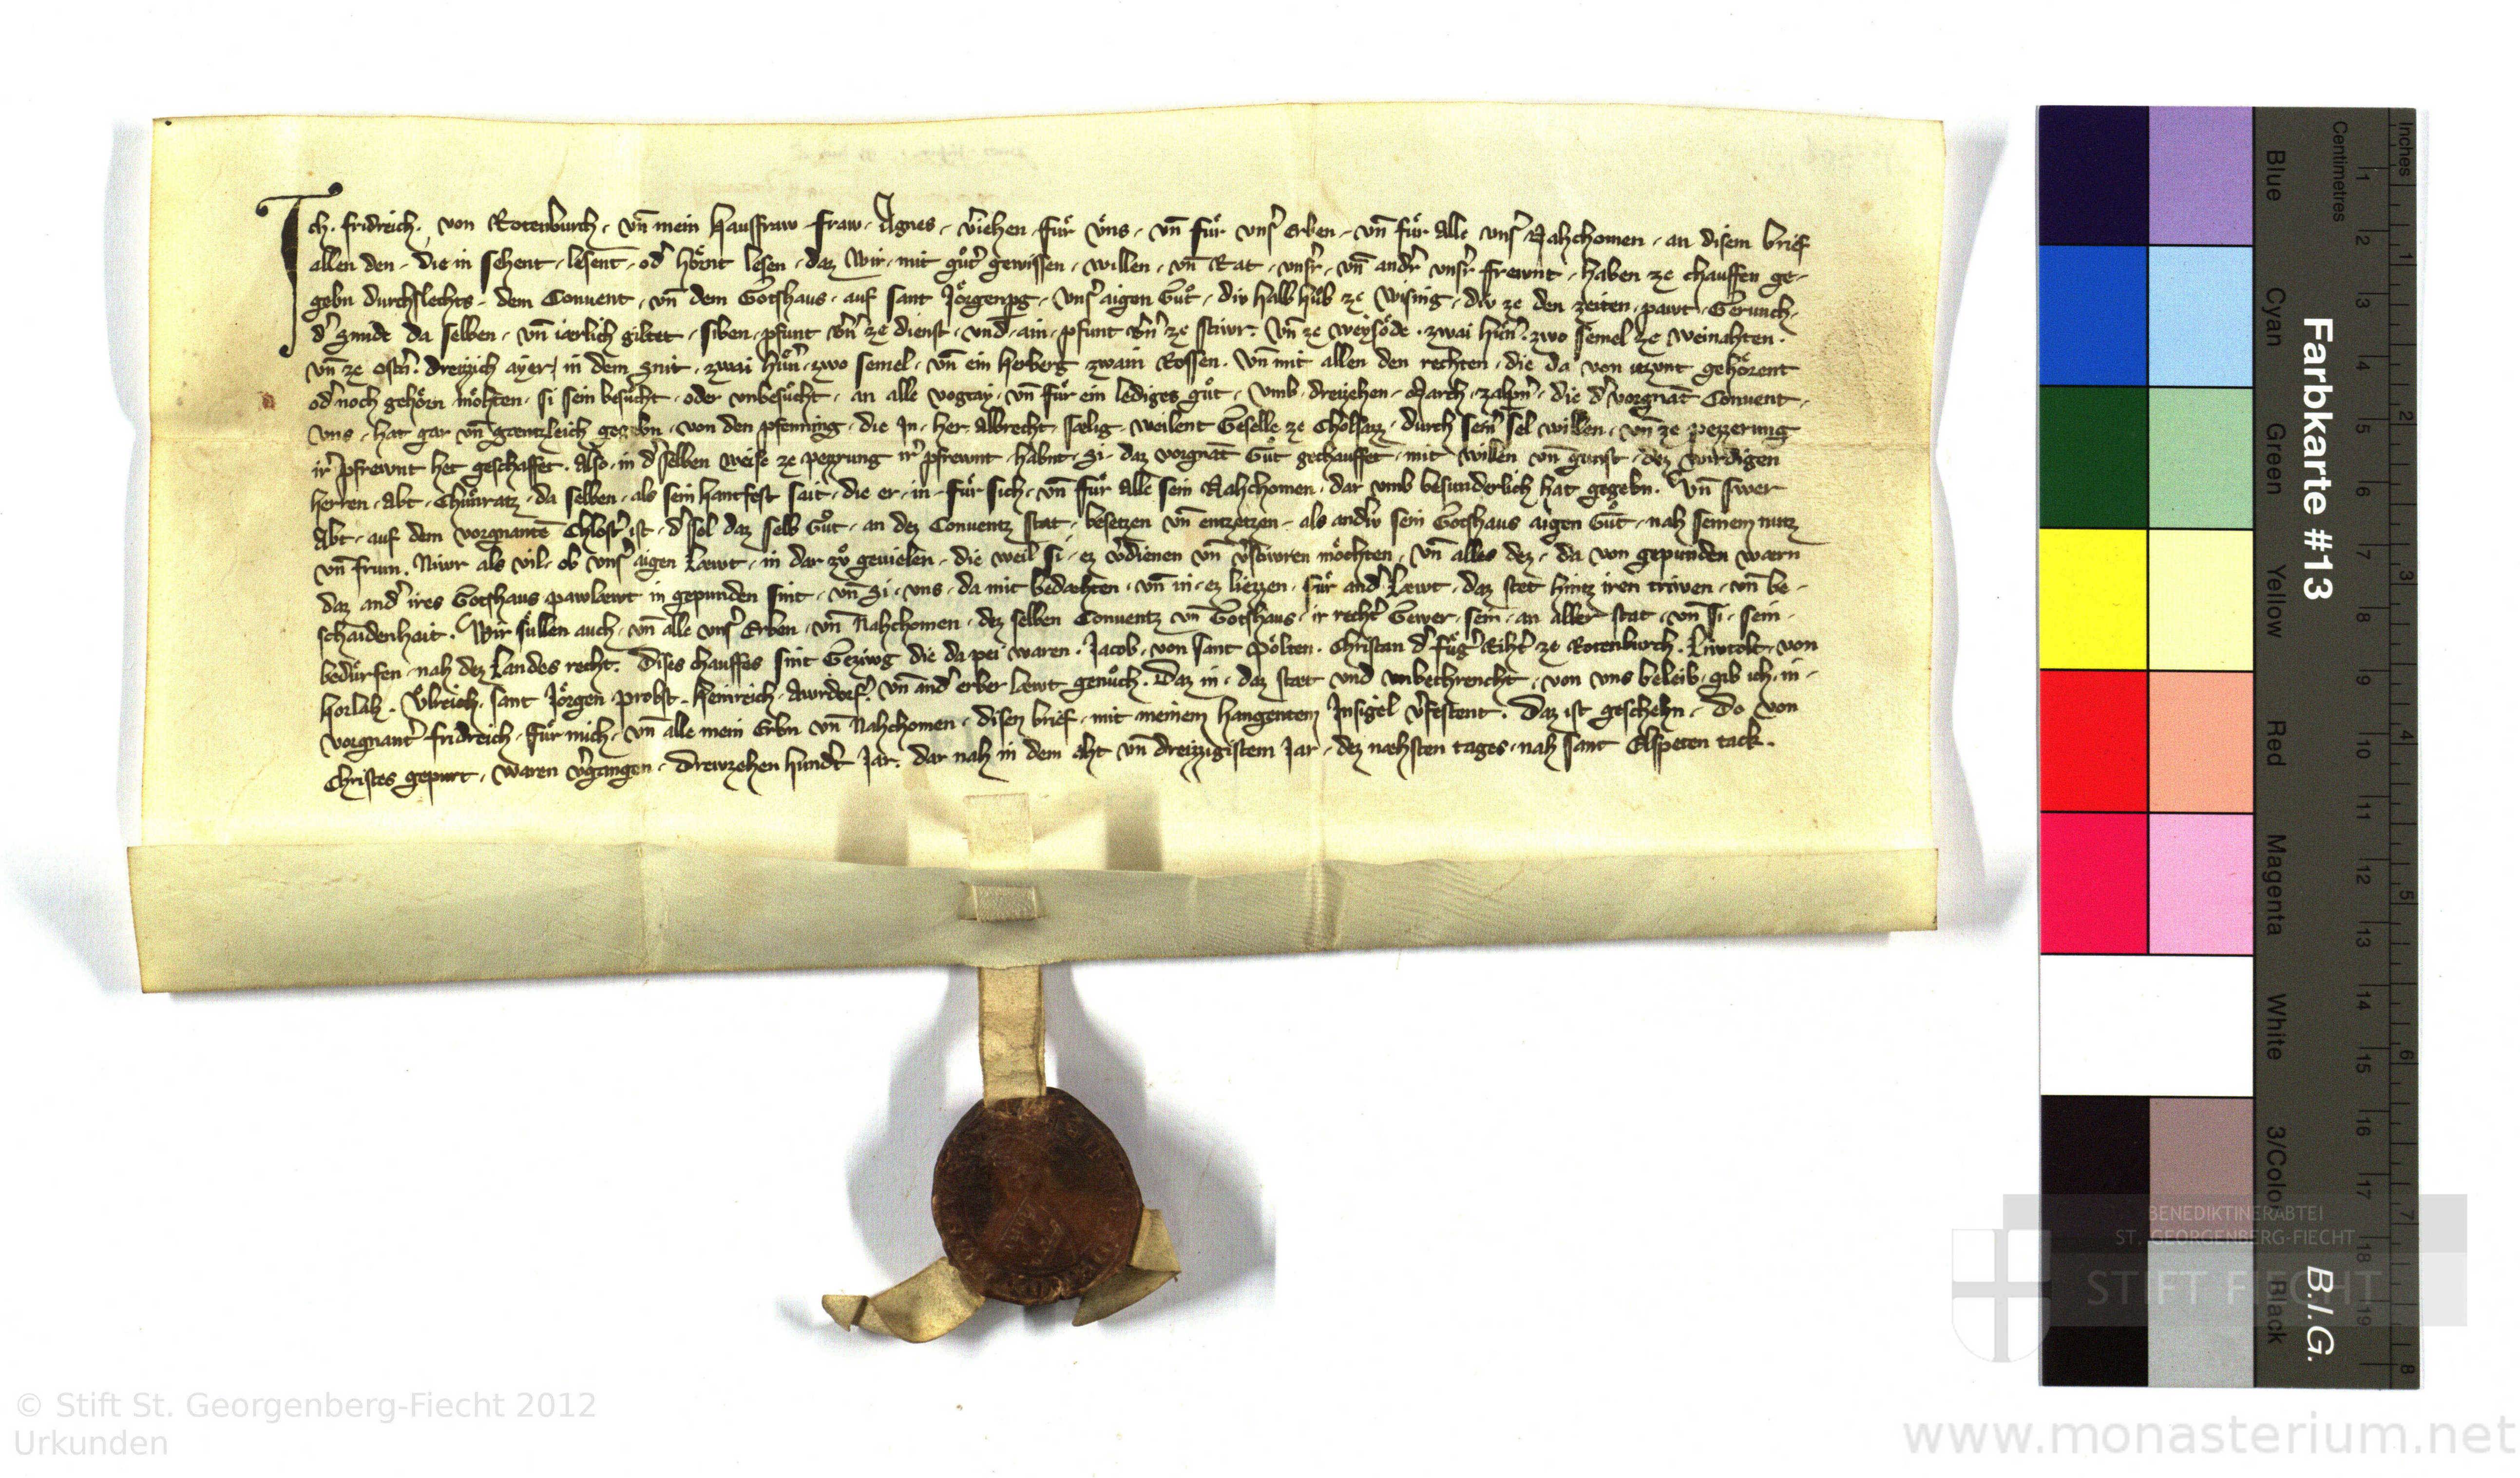 Ich . fridreich . von Rotenburch . vn̄ mein hausfraw fraw . Agnes . v̓iehen fuͤr vͤns . vn̄ fuͤr vns̓ Erben . vn̄ fuͤr Alle vns̓ Nahchomen . an disem brief
allen den . die in sehent . lesent . od̓ hoͤrnt lesen . daz Wir . mit guͦt̓ gewissen . willen . vn̄ Rat . vnsr̓ . vn̄ andr̓ vnsr̓ frewnt . haben ze chauffen ge-
gebn durchslechts . dem Conuent . vn̄ dem Gotshaus . auf sant Joͤrgenpg . vns̓ aigen Guͦt . div halb huͦb ze Wising . div ze den zeiten . pawt . Gerunch .
d̓ Smide da selben . vn̄ iærlich giltet . siben . pfunt ze dienst . vnd . ain . pfunt ze stiwr . Vn̄ ze weysoͤde . zwai huͤn̓ . zwo semel ze weinahten .
vn̄ ze ostn̓ . dreizzich ayer . in dem Snit . zwai huͤn̓ . zwo semel . vn̄ ein herberg zwain Rossen . Vn̄ mit allen den rechten . die da von itzvnt gehoͤrent
od̓ noch gehoͤrn moͤhten . si sein besuͦcht . oder vnbesuͦcht . an alle vogtay . vn̄ fuͤr ein lediges guͦt . Vmb . dreizehen . March . zalpn̓ . die d̓ vorgnāt Conuent .
Vns . hat gar vn̄ gæntzleich gegebn . von den pfenning . die Jn . her Albrecht . sælig . weilent Geselle ze Cholsazz . durch sein̓ sel willen . vn̄ ze pezzerung
ir̓ pfrewnt het geschaffet . Also . in d̓ selben weise ze pezzrung ir̓ pfrewnt . habnt . Si . daz vorgnāt Guͦt gechauffet . mit willen vn̄ gunst . dez wirdigen
herren . Abt . Chuͦnratz . da selben . als sein hantfest sait . die er . in . fuͤr sich . vn̄ fuͤr Alle sein Nahchomen . dar vmb besunderlich hat gegebn . Vn̄ swer
Abt . auf dem vorgnantē Chlost̓ ist . d̓ sol daz selb Guͦt . an dez Conuentz stat . besetzen vn̄ entzetzen . als andriv sein Gotshaus aigen Guͦt . nah seinem nutz
vn̄ frum . Niwr als vil . ob vns̓ aigen Læwt . in dar zuͦ geuielen . die weil si . ez v̓dienen vn̄ v̓stiwren moͤchten . Vn̄ alles dez . da von gepunden wærn
daz and̓ ires Gotshaus pawlæwt in gepunden sint . vn̄ Si . vns . da mit bedæhten . vn̄ in . ez liezzen . fuͤr and̓ Læwt . daz stet hintz iren triwen . vn̄ be-
schaidenhait . Wir suͤllen auch . vn̄ alle vns̓ Erben . vn̄ Nahchomen . dez selben Conuentz vn̄ Gotshaus . ir recht̓ Gewer . sein . an aller stat . vn̄ si . sein .
beduͤrfen . nah dez Landes recht . Dises chauffes sint Geziwg die da pei waren . Jacob . von sant Poͤlten . Christan d̓ Fuͤg̓ Riht̓ ze Rotenburch . Liwtolt . von
horlah . Vͦlreich . sant Joͤrgen . probst . heinreich . Awrdorf̓ . vn̄ and̓ erber læwt genuͦch . Daz in . daz stæt vnd vnbechrencht . von vns beleib . gib ich . in .
vorgnant̓ fridreich . fuͤr mich . vn̄ alle mein Erbn vn̄ Nahchomen . disen brief . mit meinem hangentem Jnsigel v̓festent . Daz ist geschehn . Do von
Christes gepurt . waren v̓gangen . Drewzehen hundt̓ Jar . dar nah in dem aht vn̄ dreizzigistem Jar . dez næhsten tages . nah sant Elspeten tack .
Farbkarte #13
B.I.G.
Blue Cyan Green Yellow Red Magenta White 3/Color Black
Centimetres 1 2 3 4 5 6 7 8 9 10 11 12 13 14 15 16 17 18 19
Inches 1 2 3 4 5 6 7 8
BENEDIKTINERABTEI
ST. GEORGENBERG-FIECHT
STIFT FIECHT
© Stift St. Georgenberg-Fiecht 2012
Urkunden
www.monasterium.net